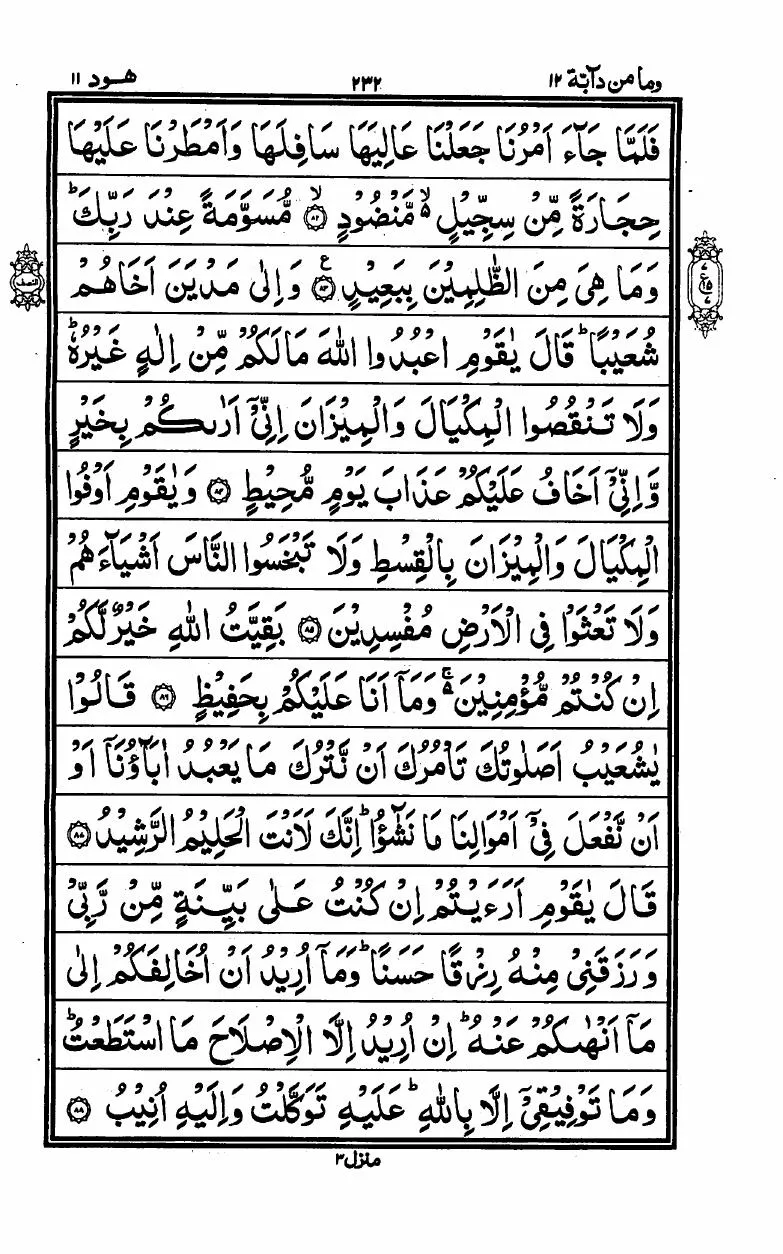 وما من دآبة ١٢
٢٣٢
هود ١١
فَلَمَّا جَآءَ اَمْرُنَا جَعَلْنَا عَالِيَهَا سَافِلَهَا وَاَمْطَرْنَا عَلَيْهَا
حِجَارَةً مِّنْ سِجِّيْلٍ ۙ۬ مَّنْضُوْدٍ ۙ﴿٨٢﴾ مُّسَوَّمَةً عِنْدَ رَبِّكَ ؕ
وَمَا هِيَ مِنَ الظّٰلِمِيْنَ بِبَعِيْدٍ ﴿٨٣﴾ ع وَاِلٰى مَدْيَنَ اَخَاهُمْ
شُعَيْبًا ؕ قَالَ يٰقَوْمِ اعْبُدُوا اللّٰهَ مَا لَكُمْ مِّنْ اِلٰهٍ غَيْرُهٗ ؕ
وَلَا تَنْقُصُوا الْمِكْيَالَ وَالْمِيْزَانَ اِنِّيْٓ اَرٰىكُمْ بِخَيْرٍ
وَّاِنِّيْٓ اَخَافُ عَلَيْكُمْ عَذَابَ يَوْمٍ مُّحِيْطٍ ﴿٨٤﴾ وَيٰقَوْمِ اَوْفُوا
الْمِكْيَالَ وَالْمِيْزَانَ بِالْقِسْطِ وَلَا تَبْخَسُوا النَّاسَ اَشْيَآءَهُمْ
وَلَا تَعْثَوْا فِي الْاَرْضِ مُفْسِدِيْنَ ﴿٨٥﴾ بَقِيَّتُ اللّٰهِ خَيْرٌ لَّكُمْ
اِنْ كُنْتُمْ مُّؤْمِنِيْنَ ۚ۬ وَمَآ اَنَا عَلَيْكُمْ بِحَفِيْظٍ ﴿٨٦﴾ قَالُوْا
يٰشُعَيْبُ اَصَلٰوتُكَ تَاْمُرُكَ اَنْ نَّتْرُكَ مَا يَعْبُدُ اٰبَآؤُنَآ اَوْ
اَنْ نَّفْعَلَ فِيْٓ اَمْوَالِنَا مَا نَشٰٓؤُا ؕ اِنَّكَ لَاَنْتَ الْحَلِيْمُ الرَّشِيْدُ ﴿٨٧﴾
قَالَ يٰقَوْمِ اَرَءَيْتُمْ اِنْ كُنْتُ عَلٰى بَيِّنَةٍ مِّنْ رَّبِّيْ
وَرَزَقَنِيْ مِنْهُ رِزْقًا حَسَنًا ؕ وَمَآ اُرِيْدُ اَنْ اُخَالِفَكُمْ اِلٰى
مَآ اَنْهٰىكُمْ عَنْهُ ؕ اِنْ اُرِيْدُ اِلَّا الْاِصْلَاحَ مَا اسْتَطَعْتُ ؕ
وَمَا تَوْفِيْقِيْٓ اِلَّا بِاللّٰهِ ؕ عَلَيْهِ تَوَكَّلْتُ وَاِلَيْهِ اُنِيْبُ ﴿٨٨﴾
منزل ٣
النصف
٧
ع ١٥
٧